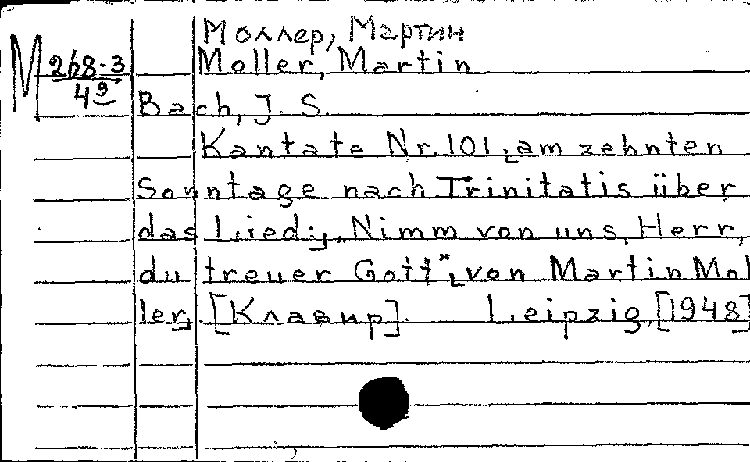 Моллер, Мартин
М 268-3 Moller, Martin
4º Bach, J. S.
Kantate Nr. 101 [am zehnten
Sonntage nach Trinitatis über
das Lied:] „Nimm von uns, Herr,
du treuer Gott" [von Martin Mol
ler]. [Клавир]. Leipzig, [1948]